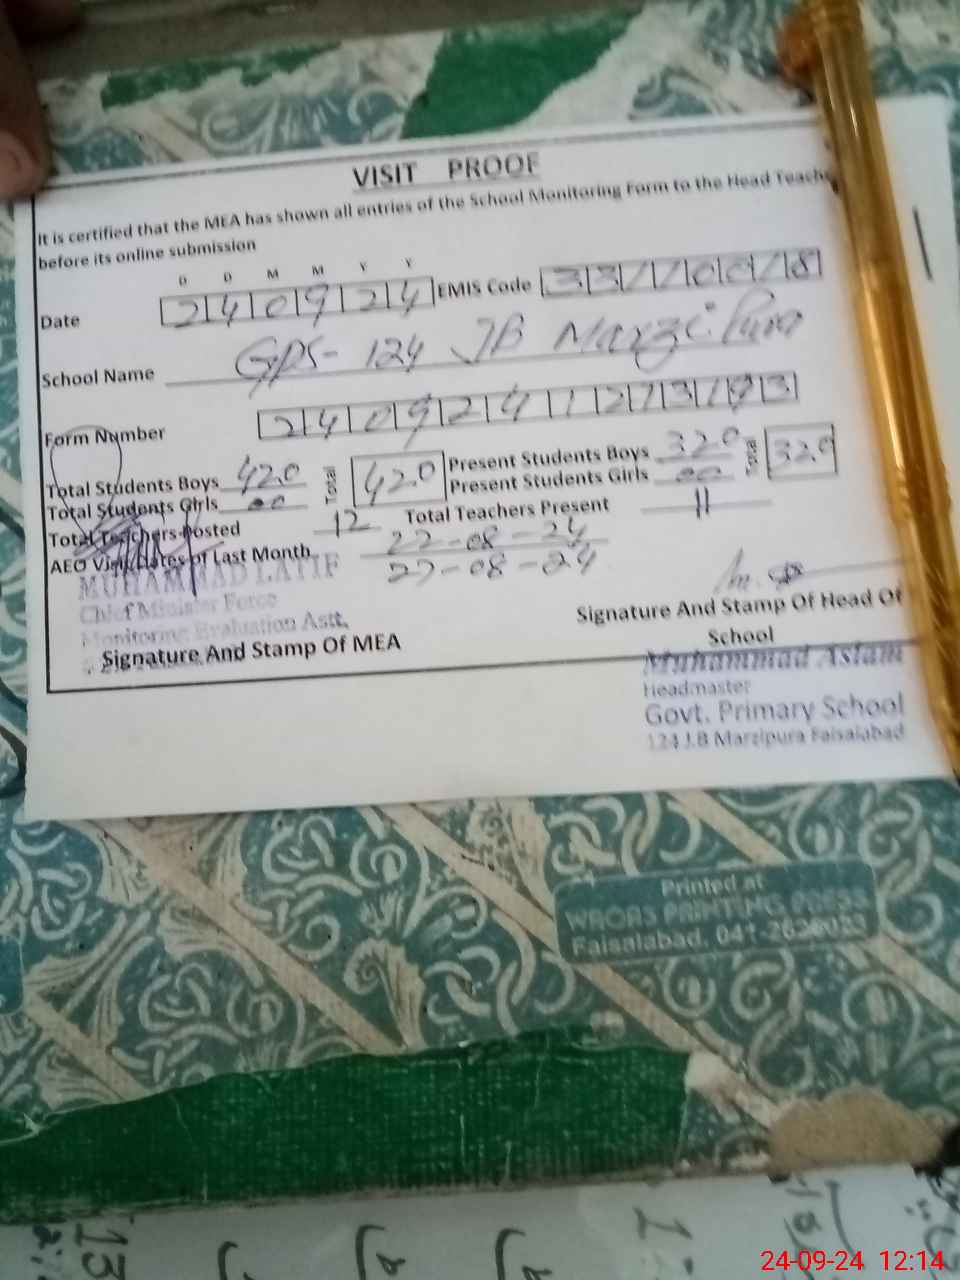 VISIT PROOF
It is certified that the MEA has shown all entries of the School Monitoring Form to the Head Teache
before its online submission
D D M M Y Y
Date 240924 EMIS Code 33170018
School Name GPS- 124 JB Marzi Pura
Form Number 240924112131
Total Students Boys 420 Total 420 Present Students Boys 320 Total 320
Total Students Girls 00 Present Students Girls 00
Total Teachers Posted 12 Total Teachers Present 11
AEO Visit Dates of Last Month 22-08-24
27-08-24
MUHAMMAD LATIF
Chief Minister Force
Monitoring Evaluation Astt,
Signature And Stamp Of MEA
Signature And Stamp Of Head Of
School
Muhammad Aslam
Headmaster
Govt. Primary School
124 J.B Marzipura Faisalabad
Printed at
PRINTING PRESS
Faisalabad, 041-
13
24-09-24 12:14